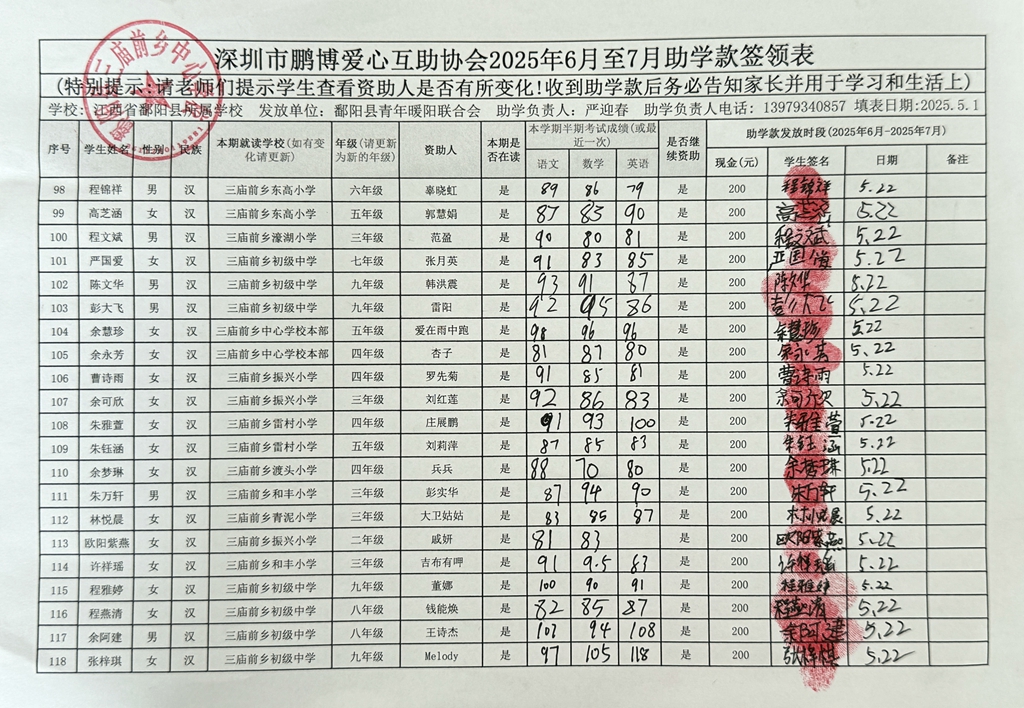 深圳市鹏博爱心互助协会2025年6月至7月助学款签领表
(特别提示:请老师们提示学生查看资助人是否有所变化!收到助学款后务必告知家长并用于学习和生活上)
学校:江西省鄱阳县所属学校 发放单位:鄱阳县青年暖阳联合会 助学负责人:严迎春 助学负责人电话:13979340857 填表日期:2025.5.1
序号 学生姓名 性别 民族 本期就读学校(如有变化请更新) 年级(请更新为新的年级) 资助人 本期是否在读 本学期半期考试成绩(或最近一次) 是否继续资助 助学款发放时段(2025年6月-2025年7月)
语文 数学 英语 现金(元) 学生签名 日期 备注
98 程锦祥 男 汉 三庙前乡东高小学 六年级 辜晓虹 是 89 86 79 是 200 程锦祥 5.22
99 高芝涵 女 汉 三庙前乡东高小学 五年级 郭慧娟 是 87 85 90 是 200 高芝涵 5.22
100 程文斌 男 汉 三庙前乡濠湖小学 三年级 范盈 是 90 80 81 是 200 程文斌 5.22
101 严国爱 女 汉 三庙前乡初级中学 七年级 张月英 是 91 83 85 是 200 严国爱 5.22
102 陈文华 男 汉 三庙前乡初级中学 九年级 韩洪震 是 93 91 87 是 200 陈文华 5.22
103 彭大飞 男 汉 三庙前乡初级中学 九年级 雷阳 是 92 95 86 是 200 彭大飞 5.22
104 余慧珍 女 汉 三庙前乡中心学校本部 五年级 爱在雨中跑 是 98 96 96 是 200 余慧珍 5.22
105 余永芳 女 汉 三庙前乡中心学校本部 四年级 杏子 是 81 87 80 是 200 余永芳 5.22
106 曹诗雨 女 汉 三庙前乡振兴小学 四年级 罗先菊 是 91 85 81 是 200 曹诗雨 5.22
107 余可欣 女 汉 三庙前乡振兴小学 三年级 刘红莲 是 92 86 83 是 200 余可欣 5.22
108 朱雅萱 女 汉 三庙前乡雷村小学 四年级 庄展鹏 是 91 93 100 是 200 朱雅萱 5.22
109 朱钰涵 女 汉 三庙前乡雷村小学 五年级 刘莉萍 是 87 85 83 是 200 朱钰涵 5.22
110 余梦琳 女 汉 三庙前乡渡头小学 四年级 兵兵 是 88 70 80 是 200 余梦琳 5.22
111 朱万轩 男 汉 三庙前乡和丰小学 三年级 彭实华 是 87 94 90 是 200 朱万轩 5.22
112 林悦晨 女 汉 三庙前乡青泥小学 三年级 大卫姑姑 是 83 85 87 是 200 林悦晨 5.22
113 欧阳紫燕 女 汉 三庙前乡振兴小学 二年级 戚妍 是 81 83 是 200 欧阳紫燕 5.22
114 许祥瑶 女 汉 三庙前乡和丰小学 三年级 吉布有呷 是 91 9.5 83 是 200 许祥瑶 5.22
115 程雅婷 女 汉 三庙前乡初级中学 九年级 董娜 是 100 90 91 是 200 程雅婷 5.22
116 程燕清 女 汉 三庙前乡初级中学 八年级 钱能焕 是 82 85 87 是 200 程燕清 5.22
117 余阿建 男 汉 三庙前乡初级中学 八年级 王诗杰 是 103 94 108 是 200 余阿建 5.22
118 张梓琪 女 汉 三庙前乡初级中学 九年级 Melody 是 97 105 118 是 200 张梓琪 5.22